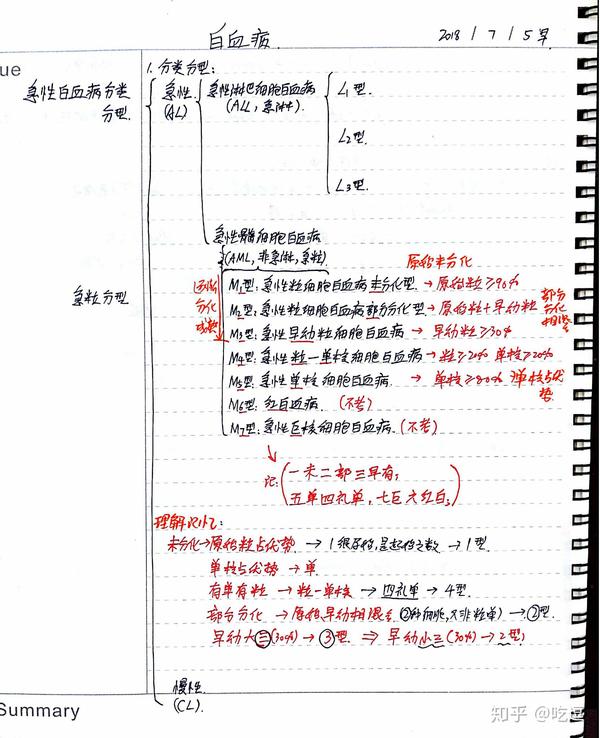 白血病
2018 / 7 / 5 早
ue
1. 分类分型:
急性白血病分类
分型
急性
(AL)
急性淋巴细胞白血病
(ALL, 急淋).
L1型.
L2型.
L3型.
急性髓细胞白血病
(AML, 非急淋, 急粒)
原始未分化
急粒分型
分化
M1型: 急性粒细胞白血病未分化型 → 原始粒≥90%
M2型: 急性粒细胞白血病部分分化型 → 原始粒+早幼粒
部分
分化
M3型: 急性早幼粒细胞白血病 → 早幼粒≥30%
M4型: 急性粒一单核细胞白血病 → 粒≥20% 单核≥20%
M5型: 急性单核细胞白血病. → 单核≥80% 单核占优势
M6型: 红白血病. (不考)
M7型: 急性巨核细胞白血病. (不考)
记: 一未二部三早有,
五单四礼单, 七巨六红白;
理解记忆:
未分化→原始粒占优势 → 1很原始, 是起始之数 → 1型.
单核占优势 → 单
有单有粒 → 粒一单核 → 四礼单 → 4型.
部分分化 → 原始,早幼相混合 (②种细胞, 又非粒单) → ②型.
早幼大三(30%) → ③型 ⇒ 早幼小三(30%) → 2型;
慢性
(CL).
Summary
知乎 @吃逗